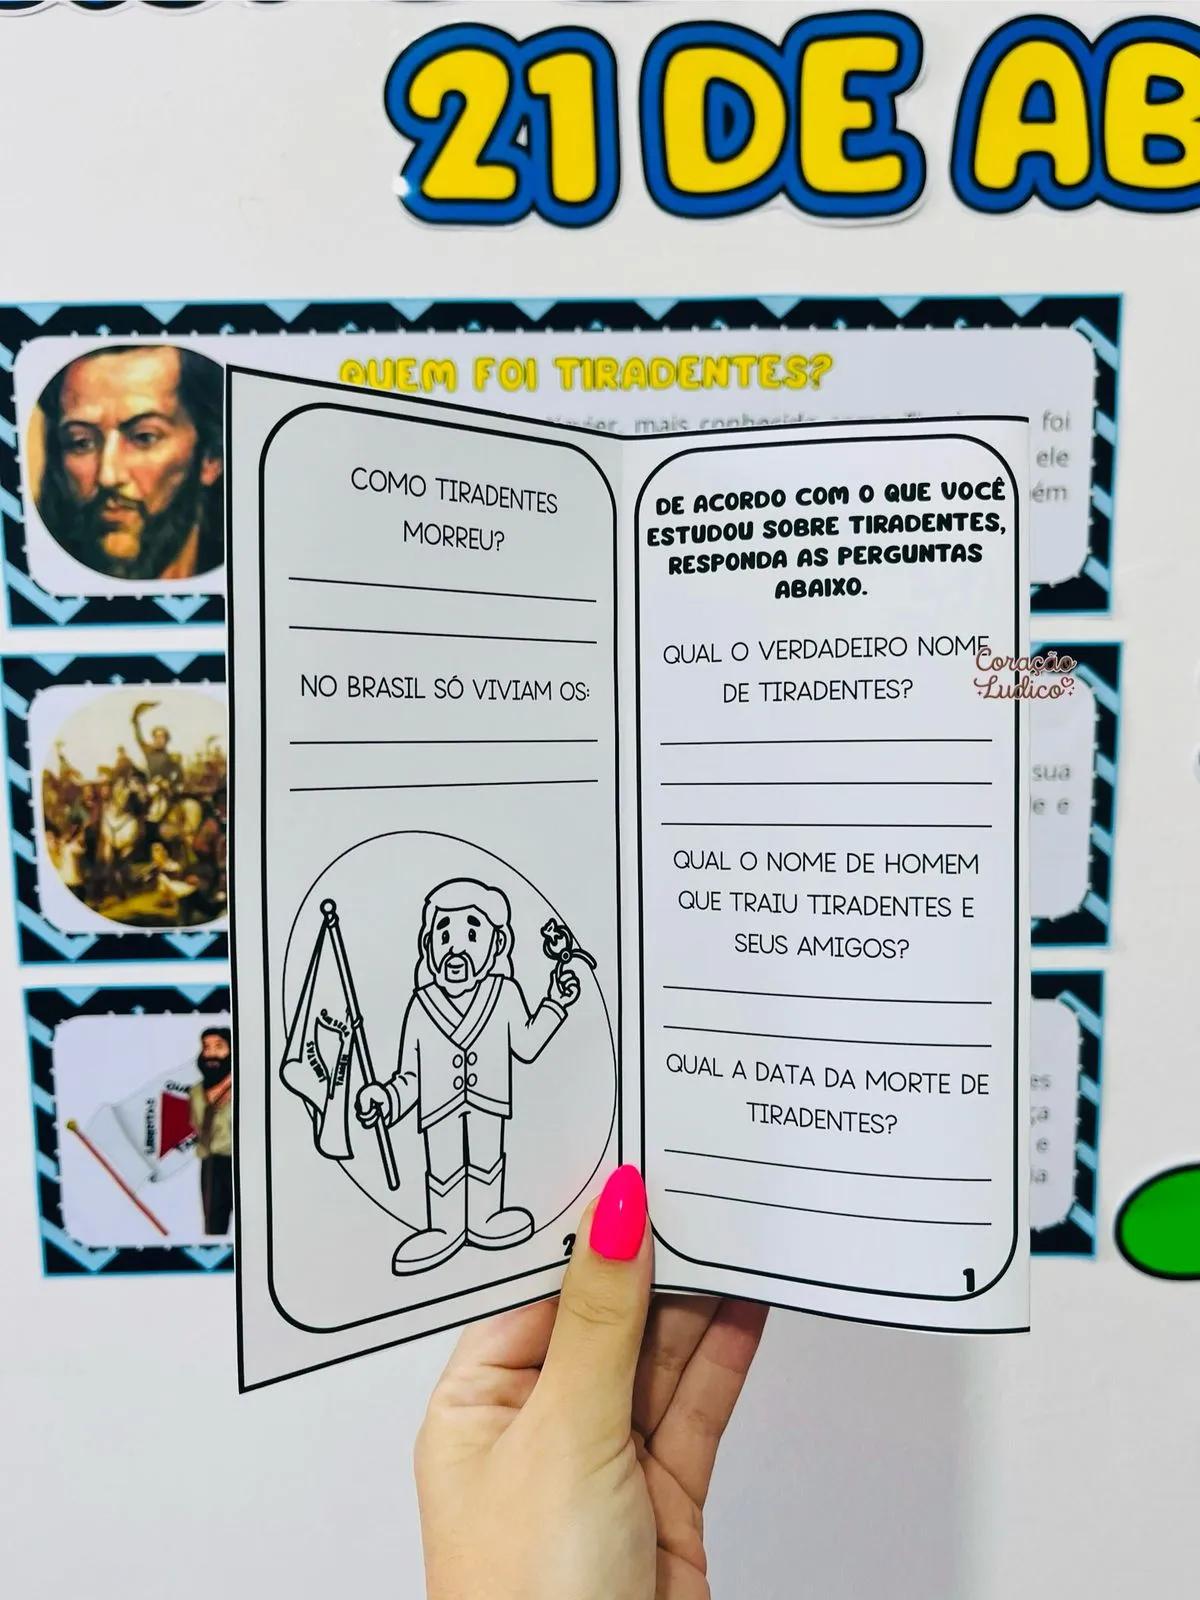 21 DE AB
QUEM FOI TIRADENTES?
mais conhecido
foi
ele
ém
COMO TIRADENTES
MORREU?
NO BRASIL SÓ VIVIAM OS:
LIBERTAS
QUÆ SERA
TAMEN
2
DE ACORDO COM O QUE VOCÊ
ESTUDOU SOBRE TIRADENTES,
RESPONDA AS PERGUNTAS
ABAIXO.
QUAL O VERDADEIRO NOME
DE TIRADENTES?
QUAL O NOME DE HOMEM
QUE TRAIU TIRADENTES E
SEUS AMIGOS?
QUAL A DATA DA MORTE DE
TIRADENTES?
1
Coração
Lúdico
sua
e e
es
ça
e
ia
LIBERTAS